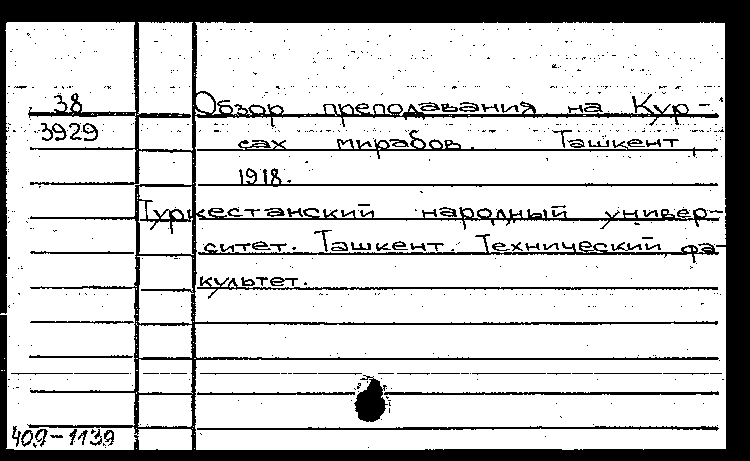 38
3929
Обзор преподавания на Кур-
сах мирабов. Ташкент,
1918.
Туркестанский народный универ-
ситет. Ташкент. Технический фа-
культет.
409-1139